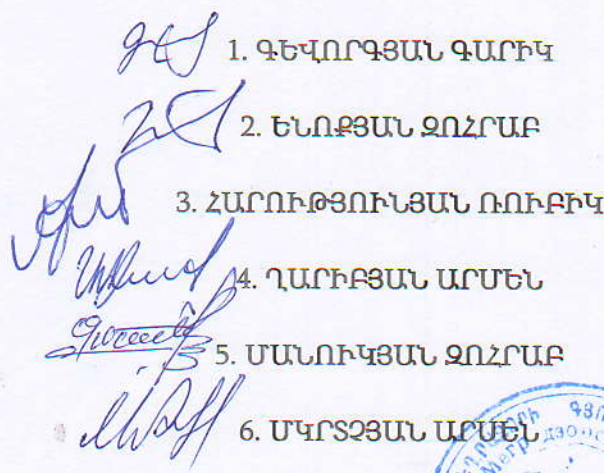 1. ԳԵՎՈՐԳՅԱՆ ԳԱՐԻԿ
2. ԵՆՈՔՅԱՆ ԶՈՀՐԱԲ
3. ՀԱՐՈՒԹՅՈՒՆՅԱՆ ՌՈՒԲԻԿ
4. ՂԱՐԻԲՅԱՆ ԱՐՄԵՆ
5. ՄԱՆՈՒԿՅԱՆ ԶՈՀՐԱԲ
6. ՄԿՐՏՉՅԱՆ ԱՐՍԵՆ